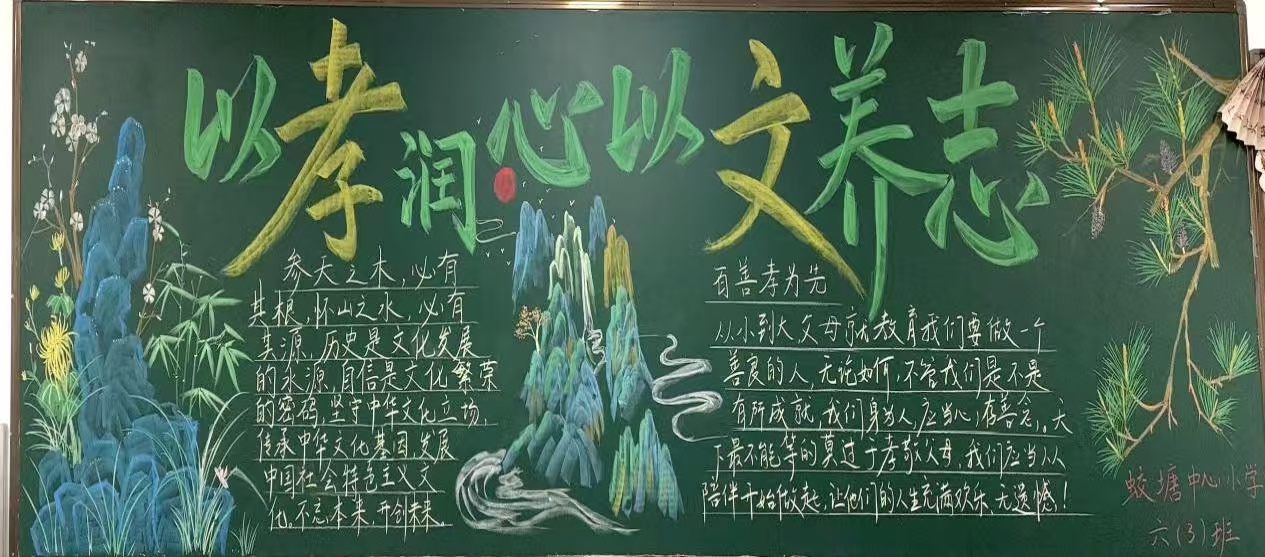 以孝润心以文养志
参天之木，必有
其根，怀山之水，必有
其源，历史是文化发展
的永源，自信是文化繁荣
的密码，坚守中华文化立场，
传承中华文化基因，发展
中国社会特色主义文
化。不忘本来，开创未来。
百善孝为先
从小到大父母就教育我们要做一个
善良的人，无论如何，不管我们是不是
有所成就，我们身为人，应当心有善念。天
下最不能等的莫过于孝敬父母，我们应当从
陪伴开始做起，让他们的人生充满欢乐，无遗憾！
蛟塘中心小学
六(3)班